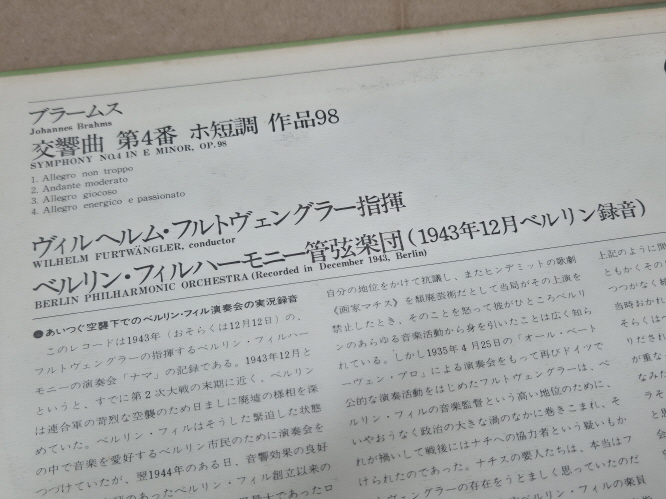 ブラームス
Johannes Brahms
交響曲 第4番 ホ短調 作品98
SYMPHONY NO.4 IN E MINOR, OP.98
1. Allegro non troppo
2. Andante moderato
3. Allegro giocoso
4. Allegro energico e passionato
ヴィルヘルム・フルトヴェングラー指揮
WILHELM FURTWÄNGLER, conductor
ベルリン・フィルハーモニー管弦楽団(1943年12月ベルリン録音)
BERLIN PHILHARMONIC ORCHESTRA (Recorded in December 1943, Berlin)
●あいつぐ空襲下でのベルリン・フィル演奏会の実況録音
このレコードは1943年(おそらくは12月12日)の、
フルトヴェングラーの指揮するベルリン・フィルハー
モニーの演奏会「ナマ」の記録である。1943年12月と
いうと、すでに第2次大戦の末期に近く、ベルリン
は連合軍の苛烈な空襲のため日ましに廃墟の様相を深
めていた。ベルリン・フィルはそうした緊迫した状態
の中で音楽を愛好するベルリン市民のために演奏会を
つづけていたが、翌1944年のある日、音響効果の良好
のあったベルリン・フィル創立以来の
自分の地位をかけて抗議し、またヒンデミットの歌劇
《画家マチス》を頽廃芸術だとして当局がその上演を
禁止したとき、そのことを怒って彼がひところベルリ
ンのあらゆる音楽活動から身を引いたことは広く知ら
れている。しかし1935年4月25日の「オール・ベート
ーヴェン・プロ」による演奏会をもって再びドイツで
公的な演奏活動をはじめたフルトヴェングラーは、ベ
ルリン・フィルの音楽監督という高い地位のために、
いやおうなく政治の大きな渦のなかに巻きこまれ、そ
れが禍いして戦後にはナチへの協力者という疑いもか
けられたのであった。ナチスの要人たちは、本当はフ
ルトヴェングラーの存在をうとましく思っていたのだ
ベルリン・フィルの楽員
上記のように
ともかくその
つつがなく
当時おかれ
そらくはベ
りだされ
が重な
なみた
ラそ
と思
会